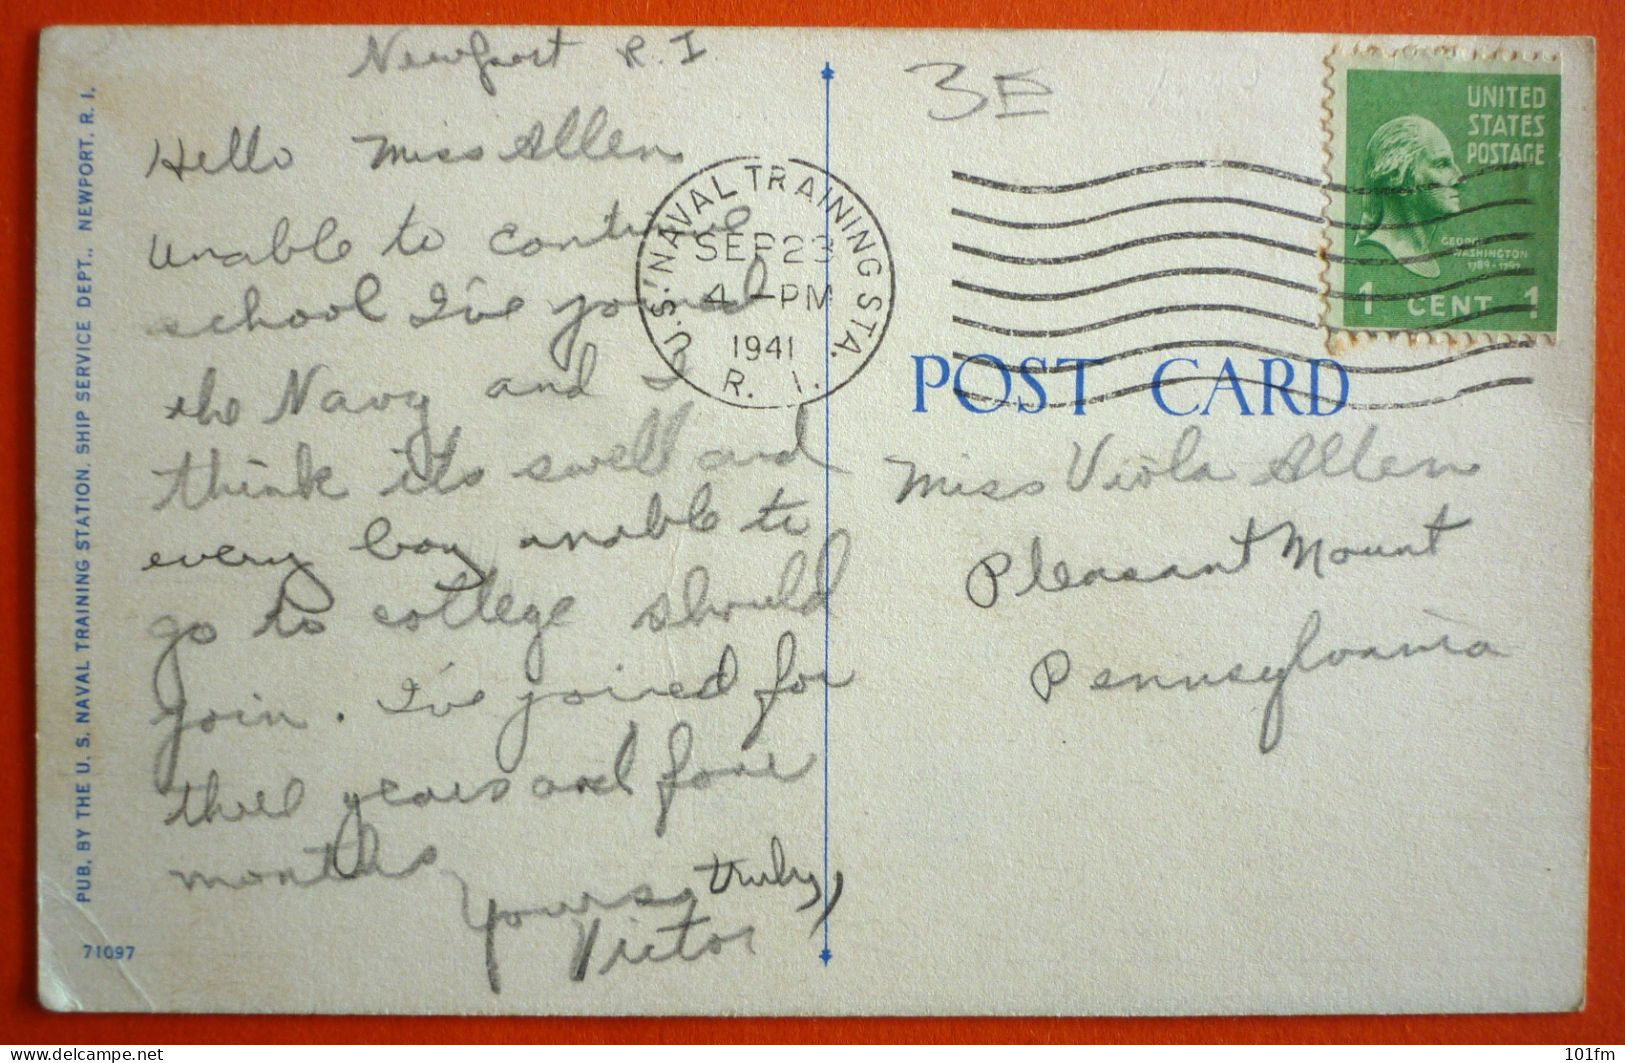 Newport R.I.
Hello Miss Allen
Unable to continue
school I've joined
the Navy and I
think its swell and
every boy unable to
go to college should
join. I've joined for
three years and four
months
Yours truly,
Victor
PUB. BY THE U. S. NAVAL TRAINING STATION, SHIP SERVICE DEPT., NEWPORT, R. I.
71097
U.S. NAVAL TRAINING STA.
SEP 23
4 - PM
1941
R. I.
3E
UNITED
STATES
POSTAGE
GEORGE
WASHINGTON
1789-1797
1 CENT 1
POST CARD
Miss Viola Allen
Pleasant Mount
Pennsylvania
101fm